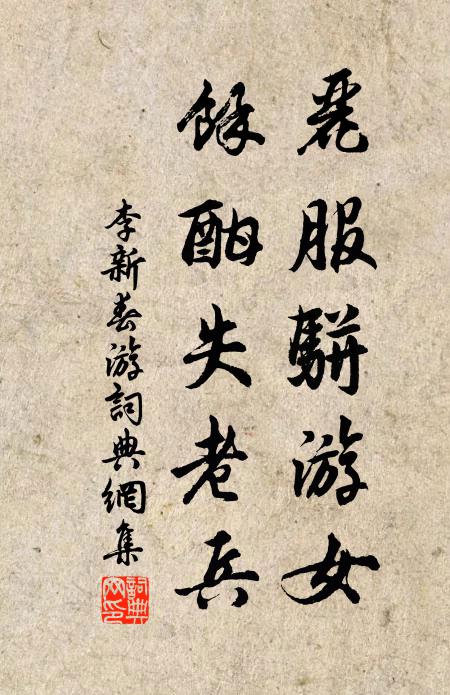 麗服駢游女
餘酣失老兵
李新春游詞典網集
詞典網印